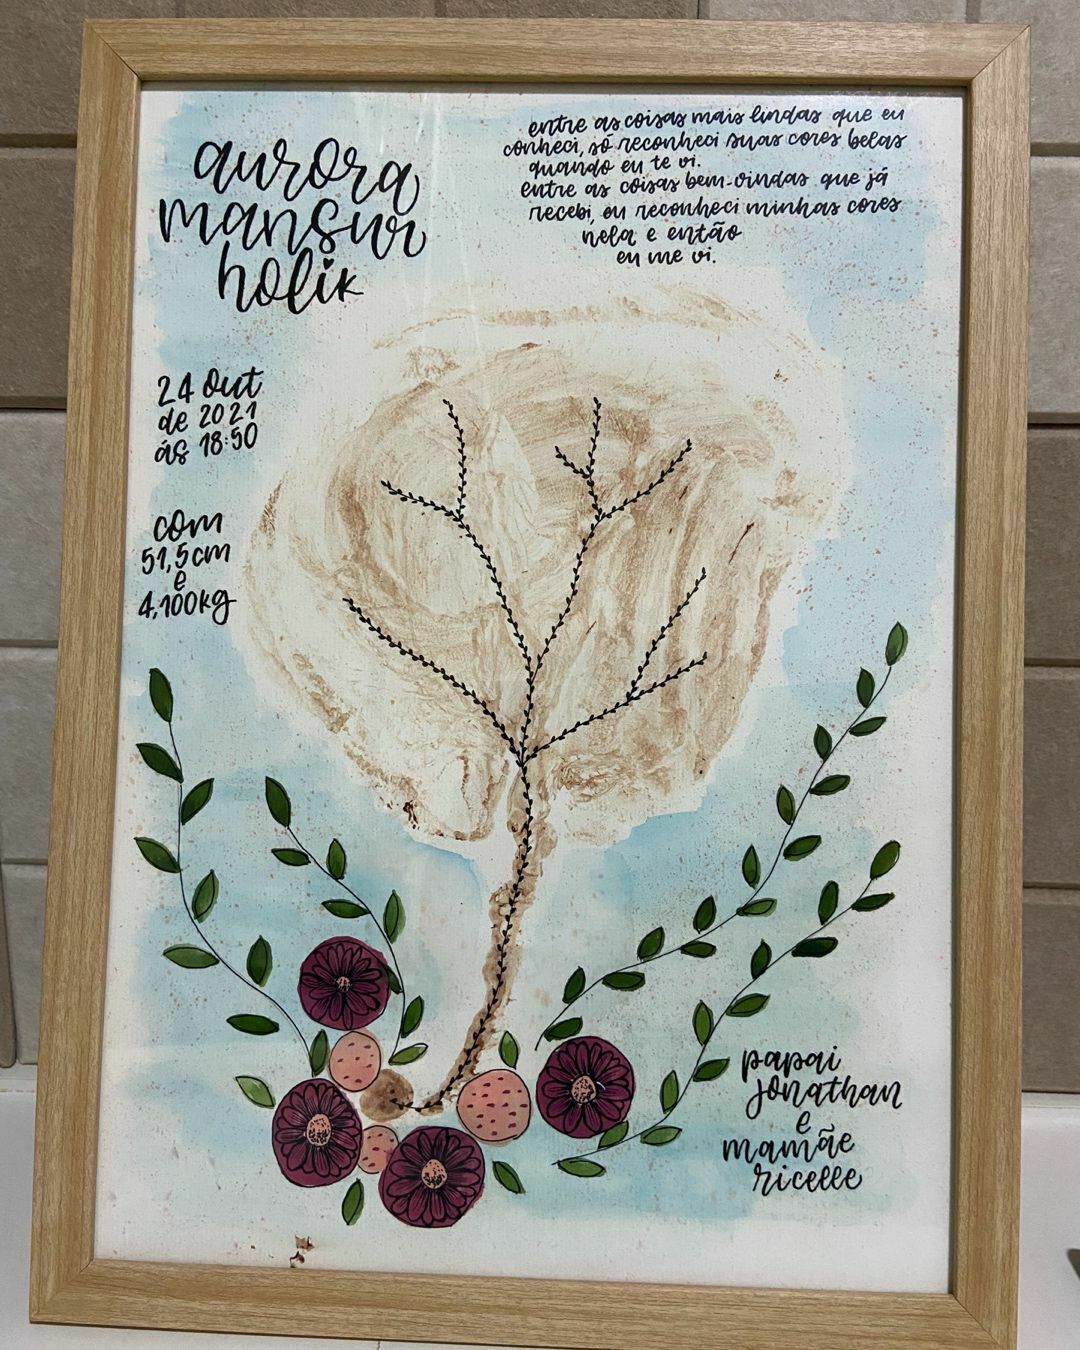 aurora
mansur
holik
entre as coisas mais lindas que eu
conheci, só reconheci suas cores belas
quando eu te vi.
entre as coisas bem-vindas que já
recebi, eu reconheci minhas cores
nela e então
eu me vi.
24 out
de 2021
ás 18:50
com
51,5cm
e
4,100kg
papai
jonathan
e
mamãe
ricelle